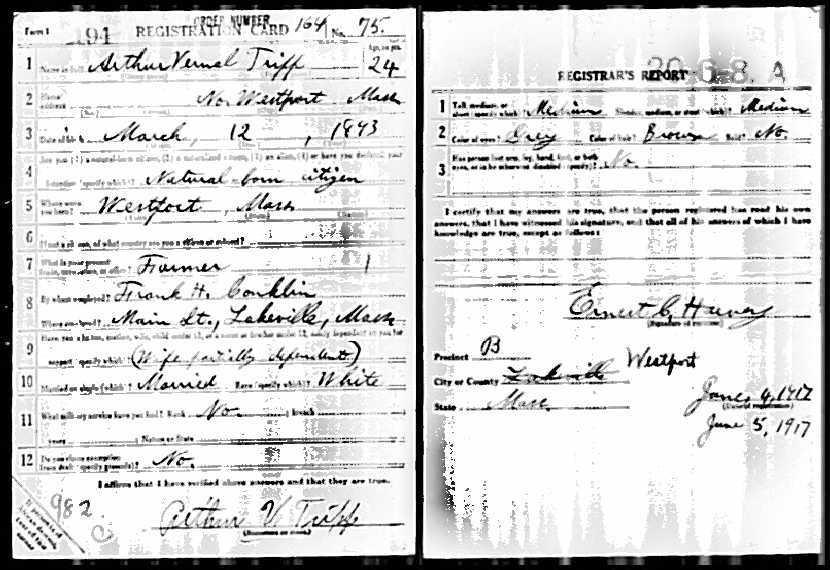 Form 1
ORDER NUMBER
191 REGISTRATION CARD 164 No. 75.
Age, in yrs.
1 Name in full Arthur Vernal Tripp 24
2 Home address No. Westport Mass
3 Date of birth March, 12, 1893
Are you (1) a natural-born citizen, (2) a naturalized citizen, (3) an alien, (4) or have you declared your
4 intention (specify which)? Natural-born citizen
5 Where were you born? Westport, Mass
6 If not a citizen, of what country are you a citizen or subject?
7 What is your present trade, occupation, or office? Farmer 1
8 By whom employed? Frank H. Conklin
Where employed? Main St., Lakeville, Mass
Have you a father, mother, wife, child under 12, or a sister or brother under 12, solely dependent on you for
9 support (specify which)? (Wife partially dependent)
10 Married or single (which)? Married Race (specify which)? White
11 What military service have you had? Rank No ; branch
years ; Nation or State
12 Do you claim exemption from draft (specify grounds)? No.
I affirm that I have verified above answers and that they are true.
Arthur V. Tripp
(Signature or mark)
982
C
20-6-8. A
REGISTRAR'S REPORT
1 Tall, medium, or short (specify which)? Medium Slender, medium, or stout (which)? Medium
2 Color of eyes? Grey Color of hair? Brown Bald? No.
3 Has person lost arm, leg, hand, foot, or both eyes, or is he otherwise disabled (specify)? No.
I certify that my answers are true, that the person registered has read his own
answers, that I have witnessed his signature, and that all of his answers of which I have
knowledge are true, except as follows:
(Signature of registrar)
Precinct B
City or County Lakeville Westport
State Mass.
June 4, 1917
(Date of registration)
June 5, 1917